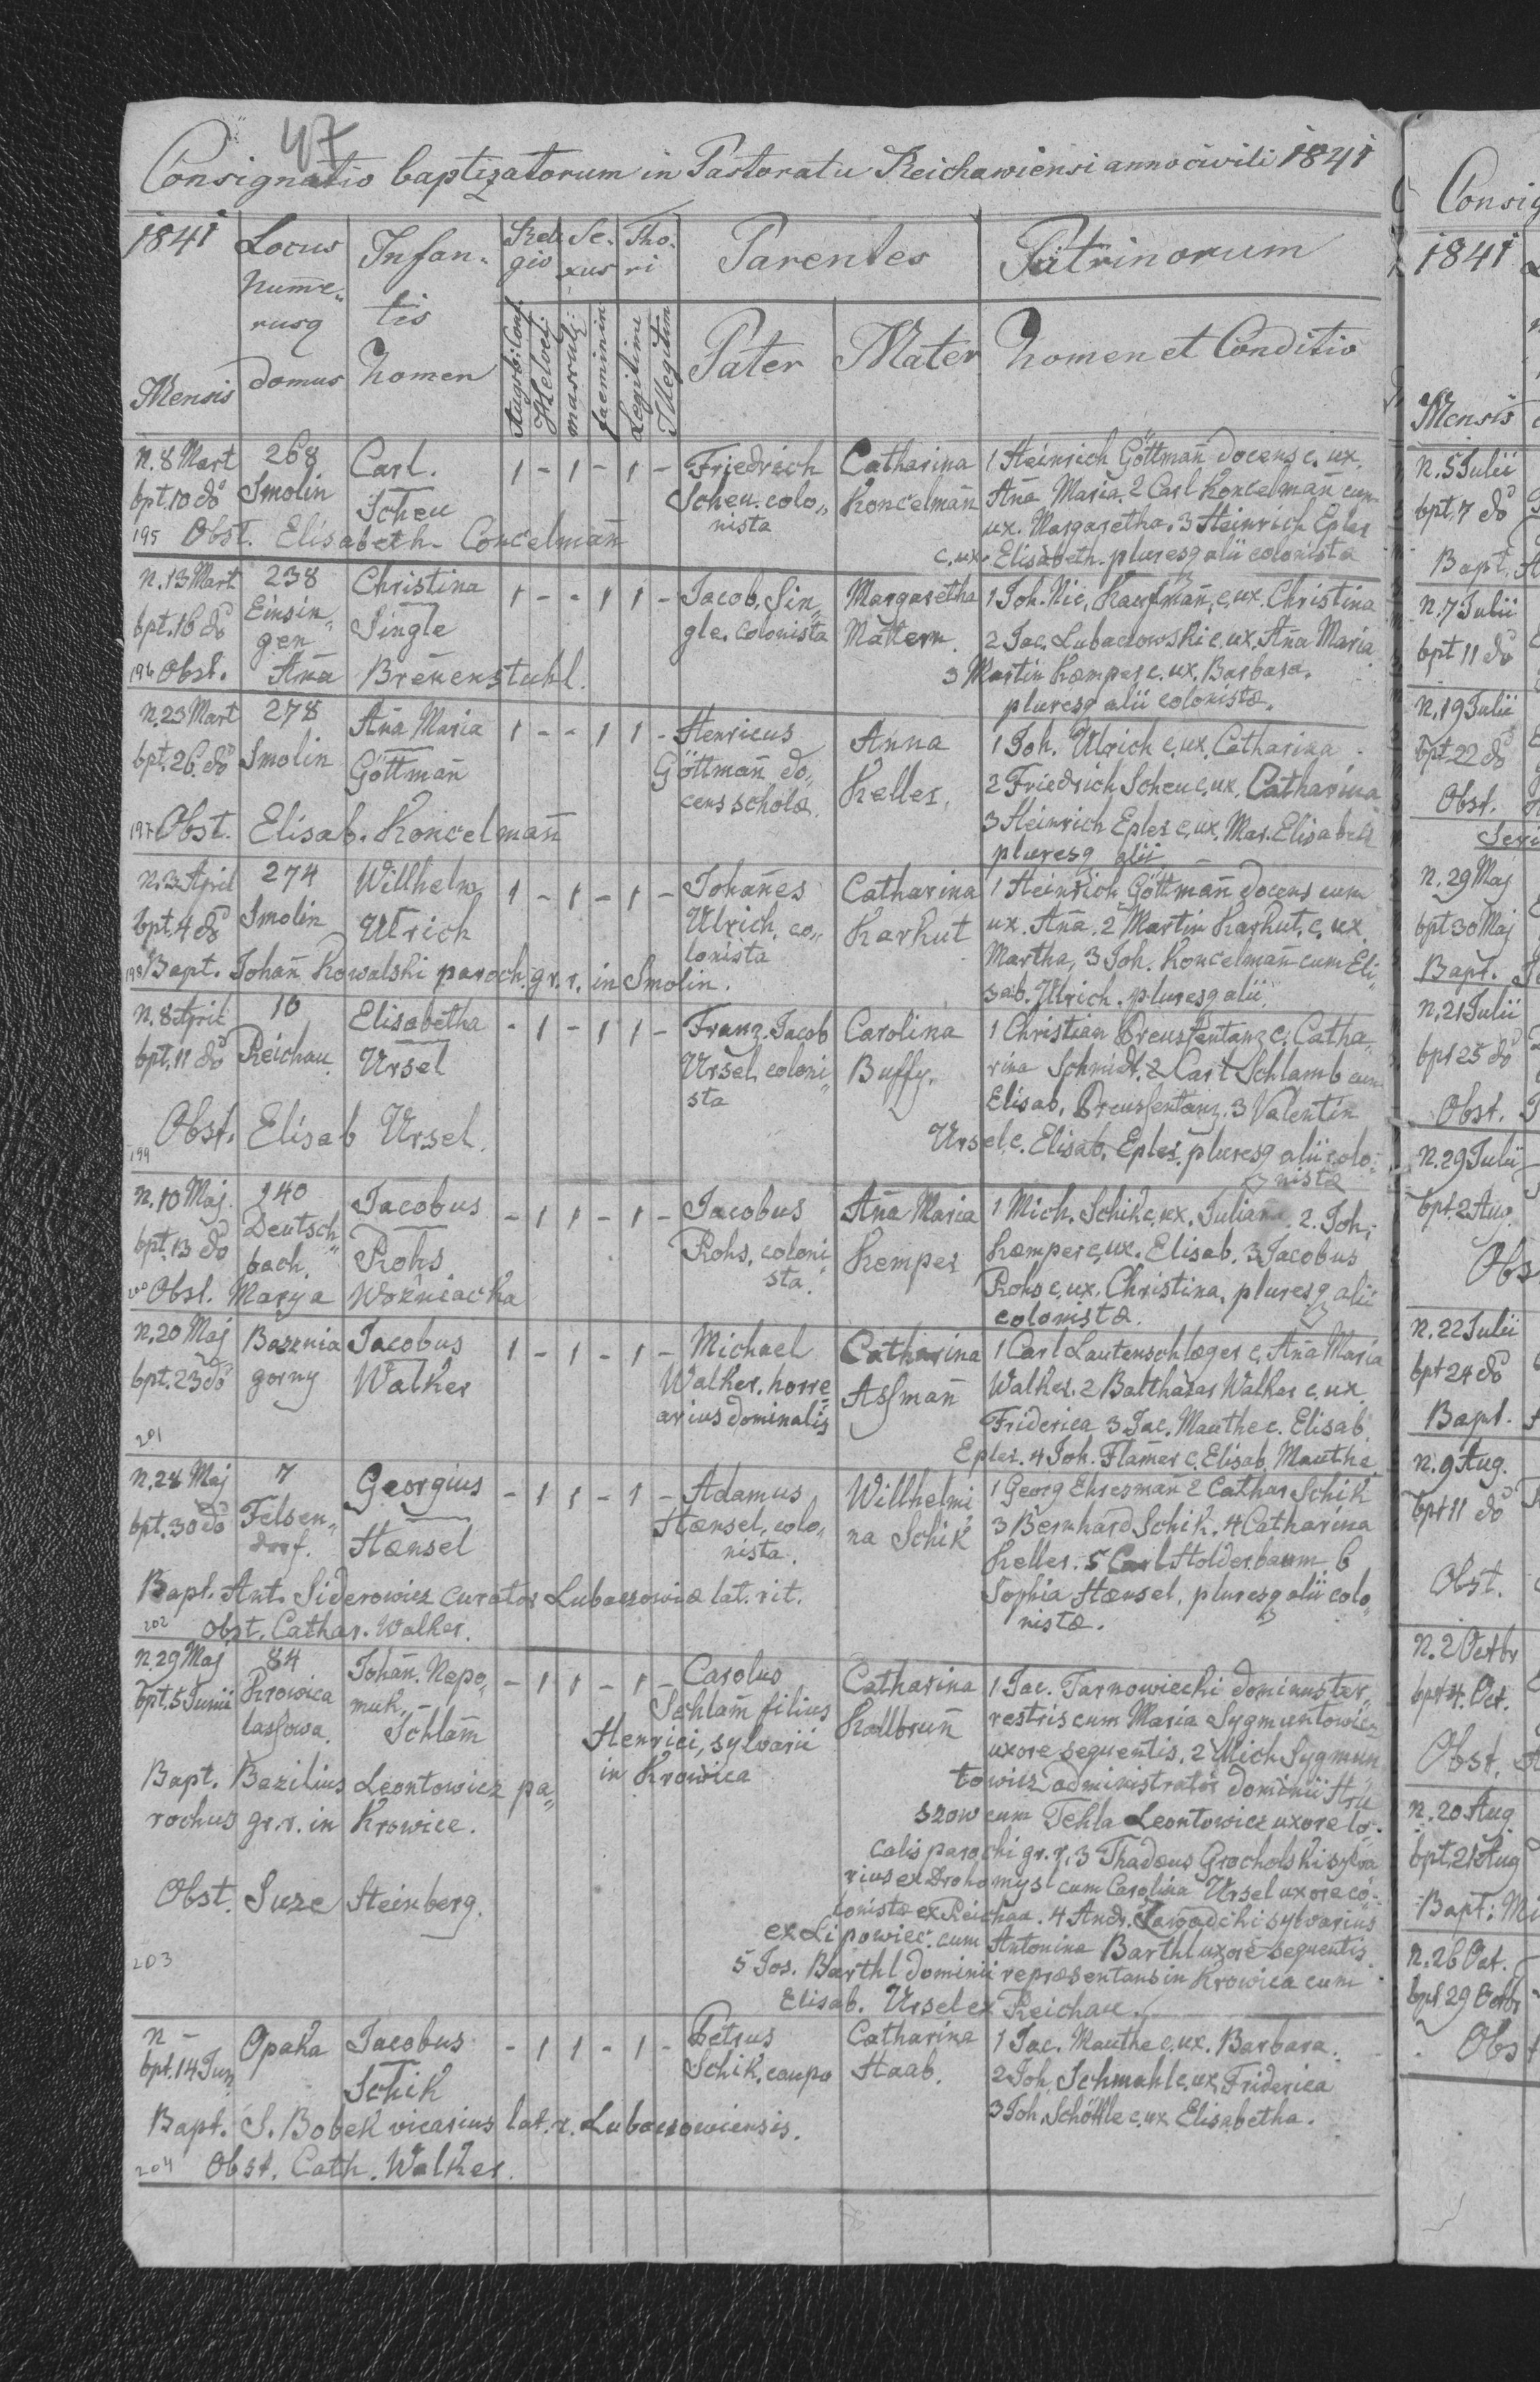 47
Consignatio baptizatorum in Pastoratu Reichawiensi anno civili 1841
1841 Locus Infan- Reli- Se- Tho- Parentes Patrinorum
Nume- gio xus ri
rusq tis
Mensis domus Nomen Augsb: Conf. Helvet: masculi: faeminin Legitimi Illegitim Pater Mater Nomen et Conditio
N. 8 Mart 268 Carl. 1 - 1 - 1 - Friedrich Catharina 1 Heinrich Göttman̄ docens c. ux.
bpt. 10 do Smolin Scheu Scheu. colo„ Koncelman̄ An̄a Maria. 2 Carl Koncelman̄ cum
nista ux. Margaretha. 3 Heinrich Epler
195 Obst. Elisabeth Concelman̄ c. ux. Elisabeth. pluresq alii colonista
N. 13 Mart 238 Christina 1 - - 1 1 - Jacob. Sin„ Margaretha 1 Joh. Nic. Kaufman̄, c. ux. Christina
bpt. 16 do Einsin„ Single gle. colonista Mattern. 2 Jac. Lubaczowski c. ux. An̄a Maria
gen 3 Martin Kæmper c. ux. Barbara.
196 Obst. An̄a Bren̄enstuhl. pluresq alii colonistæ.
N. 23 Mart 278 An̄a Maria 1 - - 1 1 - Henricus Anna 1 Joh. Ulrich c. ux. Catharina
bpt. 26. do Smolin Göttman̄ Göttman̄ do„ Keller, 2 Friedrich Scheu c. ux. Catharina
cens scholæ. 3 Heinrich Epler c. ux. Mar. Elisabeth
197 Obst. Elisab. Koncelman̄ pluresq alii
N. 3 April 274 Willhelm 1 - 1 - 1 - Johan̄es Catharina 1 Heinrich Göttman̄ docens cum
bpt. 4 do Smolin Ulrich Ulrich, co„ Karhut ux. An̄a. 2 Martin Karhut. c. ux.
lonista Martha, 3 Joh. Koncelman̄ cum Eli„
198 Bapt. Johan̄ Kowalski paroch. gr. r. in Smolin. sab. Ulrich. pluresq alii.
N. 8 April 10 Elisabetha - 1 - 1 1 - Franz. Jacob Carolina 1 Christian Dreussentanz c. Catha„
bpt. 11 do Reichau Ursel Ursel, coloni„ Buffy. rina Schmidt. 2 Carl Schlamb cum
sta Elisab. Dreussentanz. 3 Valentin
199 Obst. Elisab Ursel. Ursel c. Elisab. Epler. pluresq alii colo„
nistæ
N. 10 Maj. 140 Jacobus - 1 1 - 1 - Jacobus An̄a Maria 1 Mich. Schik c. ux. Juliana. 2. Joh.
bpt. 13 do Deutsch„ Rohs Rohs, coloni„ Kemper Kæmper c. ux. Elisab. 3 Jacobus
bach. sta. Rohs c. ux. Christina, pluresq alii
200 Obst. Marya Wozniacka colonistæ.
N. 20 Maj Basznia Jacobus 1 - 1 - 1 - Michael Catharina 1 Carl Lautenschlæger c. An̄a Maria
bpt. 23 do gorny Walker Walker, horre„ Assman̄ Walker. 2 Balthasar Walker c. ux.
arius dominalis Friderica 3 Jac. Mauthe c. Elisab.
201 Epler. 4 Joh. Flam̄er c. Elisab. Mauthe
N. 28 Maj 7 Georgius - 1 1 - 1 - Adamus Willhelmi„ 1 Georg Ehresman̄ 2 Cathar Schik
bpt. 30 do Felsen„ Hænsel Hænsel, colo„ na Schik 3 Bernhard Schik. 4 Catharina
dorf. nista. Keller. 5 Carl Holderbaum 6
Bapt. Ant. Siderowicz curator Lubaczowiæ lat. rit. Sophia Hænsel, pluresq alii colo„
202 Obst. Cathar. Walker. nistæ.
N. 29 Maj 84 Johan̄. Nepo„ - 1 1 - 1 - Carolus Catharina 1 Jac. Tarnowiecki dominus ter„
bpt. 5 Junii Krowica muk. Schlam̄ filius Kallbrun̄ restris cum Maria Sygmuntowicz
lassowa. Schlam̄ Henrici, sylvarii uxore sequentis. 2 Mich Sygmun
Bapt. Bazilius Leontowicz pa„ in Krowica towicz administrator dominii Hru
rochus gr. r. in Krowice. szow cum Tekla Leontowicz uxore lo„
calis parochi gr. r. 3 Thadæus Grocholski sylva
rius ex Drohomysl cum Carolina Ursel uxore co„
Obst. Suze Steinberg. lonistæ ex Reichau. 4 Andr. sylvarius
ex Lipowiec. cum Antonina Barthl uxore sequentis
203 5 Jos. Barthl dominii repræsentans in Krowica cum
Elisab. Ursel ex Reichau.
N - Opaka Jacobus - 1 1 - 1 - Petrus Catharina 1 Jac. Mauthe c. ux. Barbara.
bpt. 14 Jun. Schik Schik, caupo Staab. 2 Joh. Schmahl c. ux Friderica
Bapt. S. Bobek vicarius lat. r. Lubaczowiensis. 3 Joh. Schöttle c. ux Elisabetha.
204 Obst. Cath. Walker.
Consig
1841
Mensis
N. 5 Julii
bpt. 7 do
Bapt.
N. 7 Julii
bpt 11 do
N. 19 Julii
bpt 22 do
Obst.
N. 29 Maj
bpt 30 Maj
Bapt.
N. 21 Julii
bpt 25 do
Obst.
N. 29 Julii
bpt. 2 Aug.
Obs
N. 22 Julii
bpt 24 do
Bapt.
N. 9 Aug.
bpt 11 do
Obst.
N. 2 Octbr
bpt 4. Oct.
Obst.
N. 20 Aug.
bpt. 21 Aug
Bapt: Mi
N. 26 Oct.
bpt 29 Octbr
Obst